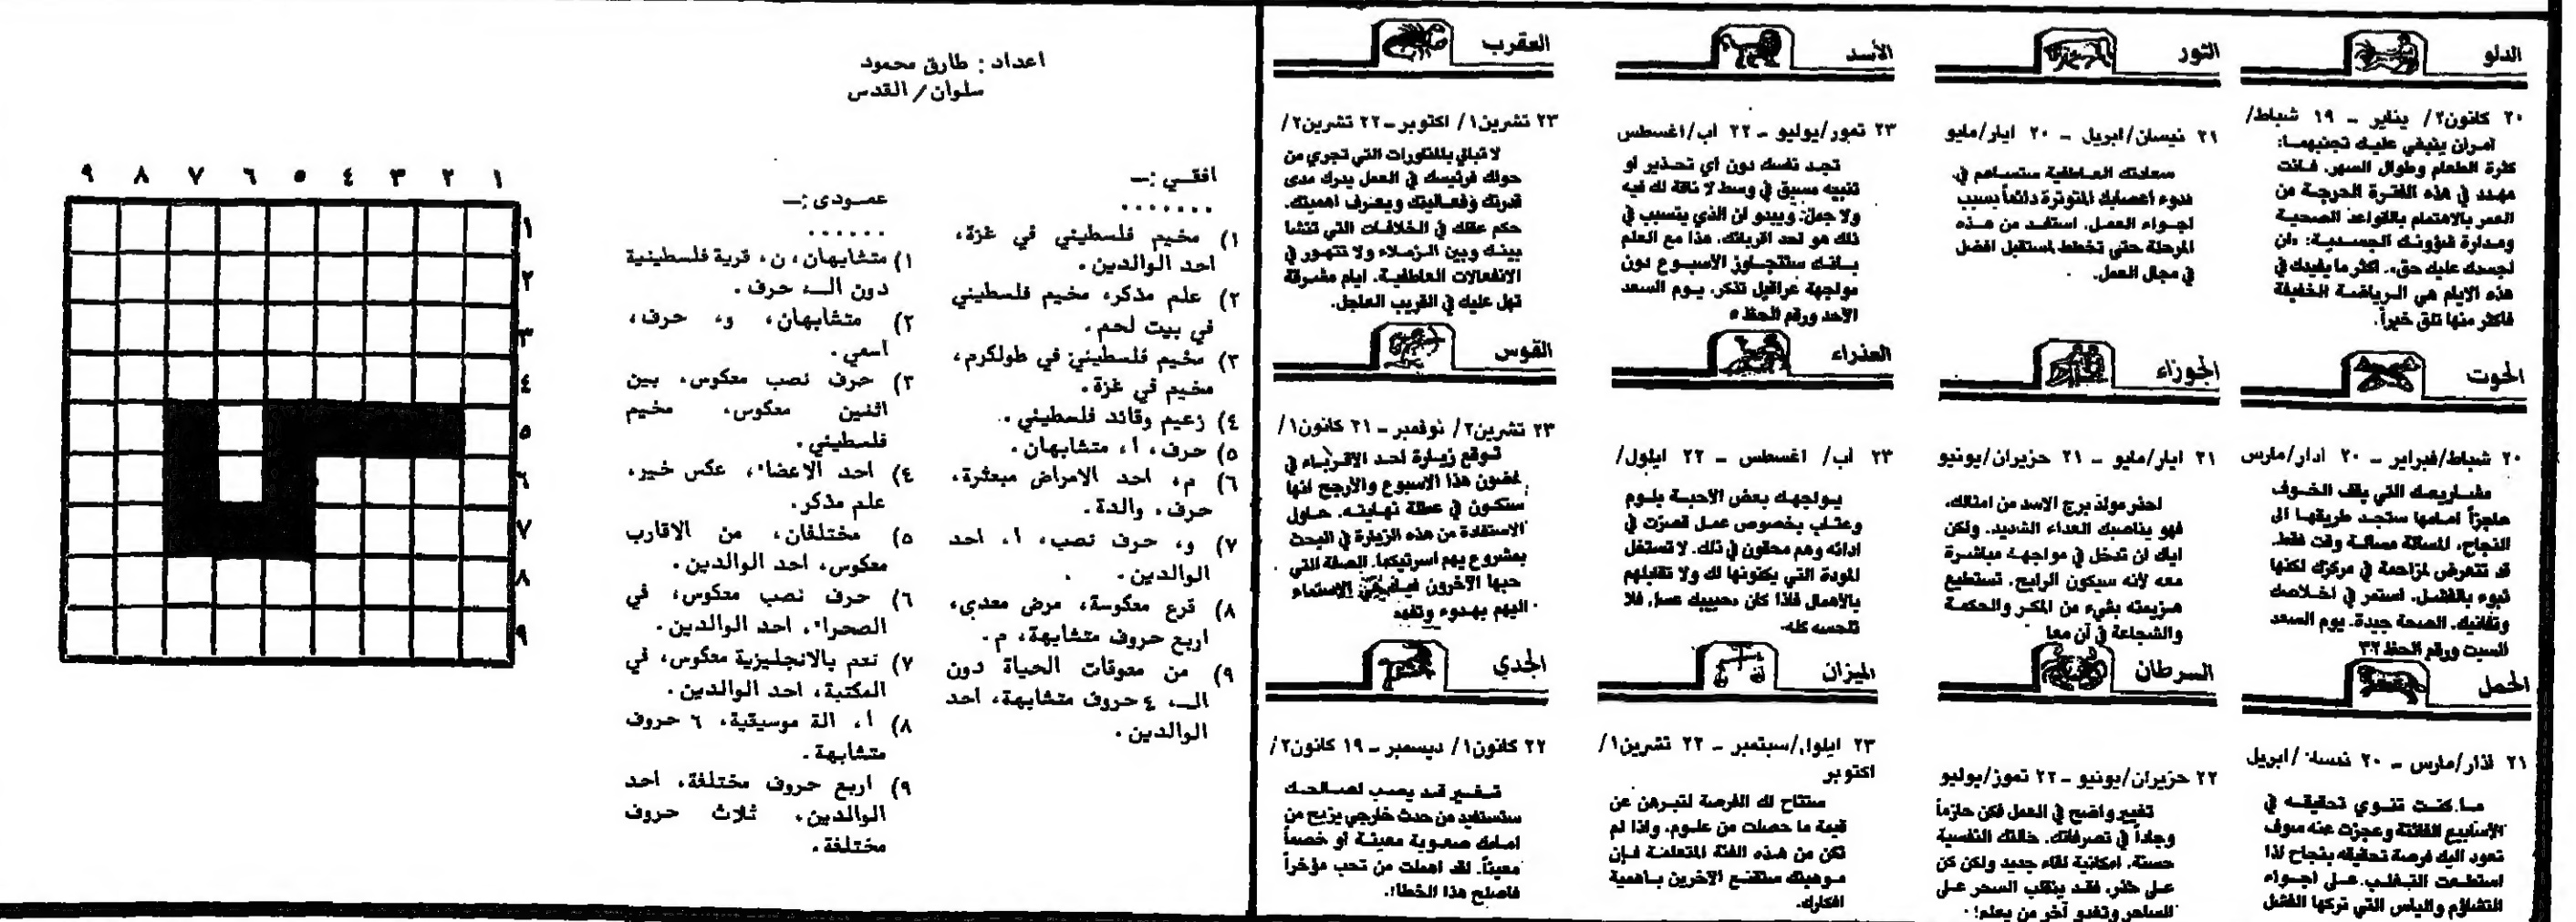 الدلو
٢٠ كانون٢/ يناير ـ ١٩ شباط/
امران ينبغي عليك تجنبهما:
كثرة الطعام وطوال السهر. فانت
مهدد في هذه الفترة الحرجة من
العمر بالاهتمام بالقواعد الصحية
ومدارة شؤونك الجسدية: «ان
لجسدك عليك حق». اكثر ما يفيدك في
هذه الايام هي الرياضة الخفيفة
فاكثر منها تلق خيراً.
الحوت
٢٠ شباط/فبراير ـ ٢٠ اذار/مارس
مشاريعك التي يقف الخوف
حاجزاً امامها ستجد طريقها الى
النجاح. المسالة مسالة وقت فقط.
قد تتعرض لمزاحمة في مركزك لكنها
تبوء بالفشل. استمر في اخلاصك
وتفانيك. الصحة جيدة. يوم السعد
السبت ورقم الحظ ٣٢
الحمل
٢١ اذار/مارس ـ ٢٠ نيسان/ابريل
ما كنت تنوي تحقيقه في
الأسابيع الفائتة وعجزت عنه سوف
تعود اليك فرصة تحقيقه بنجاح اذا
استطعت التغلب على اجواء
التشاؤم والياس التي تركها الفشل
الثور
٢١ نيسان/ابريل ـ ٢٠ ايار/مايو
سعادتك العاطفية ستساهم في
هدوء أعصابك المتوترة دائماً بسبب
اجواء العمل. استفد من هذه
المرحلة حتى تخطط لمستقبل افضل
في مجال العمل.
الجوزاء
٢١ ايار/مايو ـ ٢١ حزيران/يونيو
احذر مولد برج الاسد من امثالك.
فهو يناصبك العداء الشديد. ولكن
اياك ان تدخل في مواجهة مباشرة
معه لأنه سيكون الرابح. تستطيع
هزيمته بشيء من المكر والحكمة
والشجاعة في آن معا
السرطان
٢٢ حزيران/يونيو ـ ٢٢ تموز/يوليو
تغيير واضح في العمل فكن حازماً
وجاداً في تصرفاتك. حالتك النفسية
حسنة. امكانية لقاء جديد ولكن كن
على حذر. فقد ينقلب السحر على
الساحر وتغدو آخر من يعلم!
الأسد
٢٣ تموز/يوليو ـ ٢٢ اب/اغسطس
تجد نفسك دون اي تحذير او
تنبيه مسبق في وسط لا ناقة لك فيه
ولا جمل. ويبدو ان الذي يتسبب في
ذلك هو احد اقربائك. هذا مع العلم
بانك ستتجاوز الاسبوع دون
مواجهة عراقيل تذكر. يوم السعد
الاحد ورقم الحظ ٥
العذراء
٢٣ آب/ اغسطس ـ ٢٢ ايلول/
يواجهك بعض الاحبة بلوم
وعتاب بخصوص عمل قصرت في
ادائه وهم محقون في ذلك. لا تستغل
المودة التي يكنونها لك ولا تقابلهم
بالاهمال فاذا كان حبيبك عسل فلا
تلحسه كله.
الميزان
٢٣ ايلول/سبتمبر ـ ٢٢ تشرين١/
اكتوبر
ستتاح لك الفرصة لتبرهن عن
قيمة ما حصلت من علوم. واذا لم
تكن من هذه الفئة المتعلمة فإن
موهبتك ستقنع الآخرين باهمية
افكارك.
العقرب
٢٣ تشرين١/ اكتوبر ـ ٢٢ تشرين٢/
لا تبالي بالمناورات التي تجري من
حولك فرئيسك في العمل يدرك مدى
قدرتك وفعاليتك ويعترف اهميتك.
حكم عقلك في الخلافات التي تنشا
بينك وبين الزملاء ولا تتهور في
الانفعالات العاطفية. ايام مشرقة
تهل عليك في القريب العاجل.
القوس
٢٣ تشرين٢/ نوفمبر ـ ٢١ كانون١/
توقع زيارة احد الاقرباء في
غضون هذا الاسبوع والأرجح انها
ستكون في عطلة نهايته. حاول
الاستفادة من هذه الزيارة في البحث
بمشروع يهم اسرتيكما. الصفة التي
حبها الآخرون فيك هي الاستماع
اليهم بهدوء وتفهم
الجدي
٢٢ كانون١/ ديسمبر ـ ١٩ كانون٢/
تغيير قد يصب لصالحك
ستستفيد من حدث خارجي يزيح من
امامك صعوبة معينة او خصماً
معيناً. لقد اهملت من تحب مؤخراً
فاصلح هذا الخطا!.
اعداد : طارق محمود
سلوان/ القدس
افقي :ـ
١) مخيم فلسطيني في غزة،
احد الوالدين.
٢) علم مذكر، مخيم فلسطيني
في بيت لحم.
٣) مخيم فلسطيني في طولكرم،
مخيم في غزة.
٤) زعيم وقائد فلسطيني.
٥) حرف، أ، متشابهان.
٦) م، احد الامراض مبعثرة،
حرف، والدة.
٧) و، حرف نصب، ا، احد
الوالدين.
٨) قرع معكوسة، مرض معدي،
اربع حروف متشابهة، م.
٩) من معوقات الحياة دون
الـ، ٤ حروف متشابهة، احد
الوالدين.
عمودى :ـ
١) متشابهان، ن، قرية فلسطينية
دون الـ، حرف.
٢) متشابهان، و، حرف،
اسعي.
٣) حرف نصب معكوس، بين
اثنين معكوس، مخيم
فلسطيني.
٤) احد الاعضاء، عكس خير،
علم مذكر.
٥) مختلفان، من الاقارب
معكوس، احد الوالدين.
٦) حرف نصب معكوس، في
الصحراء، احد الوالدين.
٧) نعم بالانجليزية معكوس، في
المكتبة، احد الوالدين.
٨) أ، الة موسيقية، ٦ حروف
متشابهة.
٩) اربع حروف مختلفة، احد
الوالدين، ثلاث حروف
مختلفة.
٩ ٨ ٧ ٦ ٥ ٤ ٣ ٢ ١
١
٢
٣
٤
٥
٦
٧
٨
٩